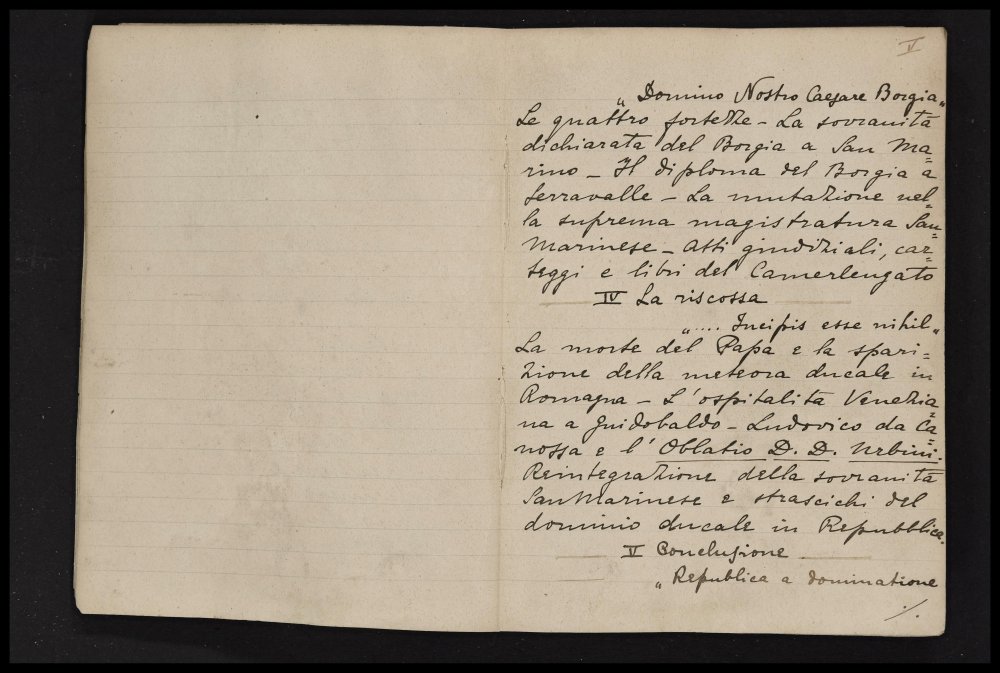 V
„ Domino Nostro Caesare Borgia „
Le quattro fortezze – La sovranità
dichiarata del Borgia a San Ma=
rino – Il diploma del Borgia a
Serravalle – La mutazione nel=
la suprema magistratura San=
Marinese – Atti giudiziali, car=
teggi e libri del Camerlengato
IV La riscossa
„ .... Incipis esse nihil „
La morte del Papa e la spari=
zione della meteora ducale in
Romagna – L'ospitalità Venezia=
na a Guidobaldo – Ludovico da Ca=
nossa e l' Oblatio D. D. Urbini.
Reintegrazione della sovranità
San Marinese e strascichi del
dominio ducale in Repubblica.
V Conclusione
„ Republica a dominatione
./.